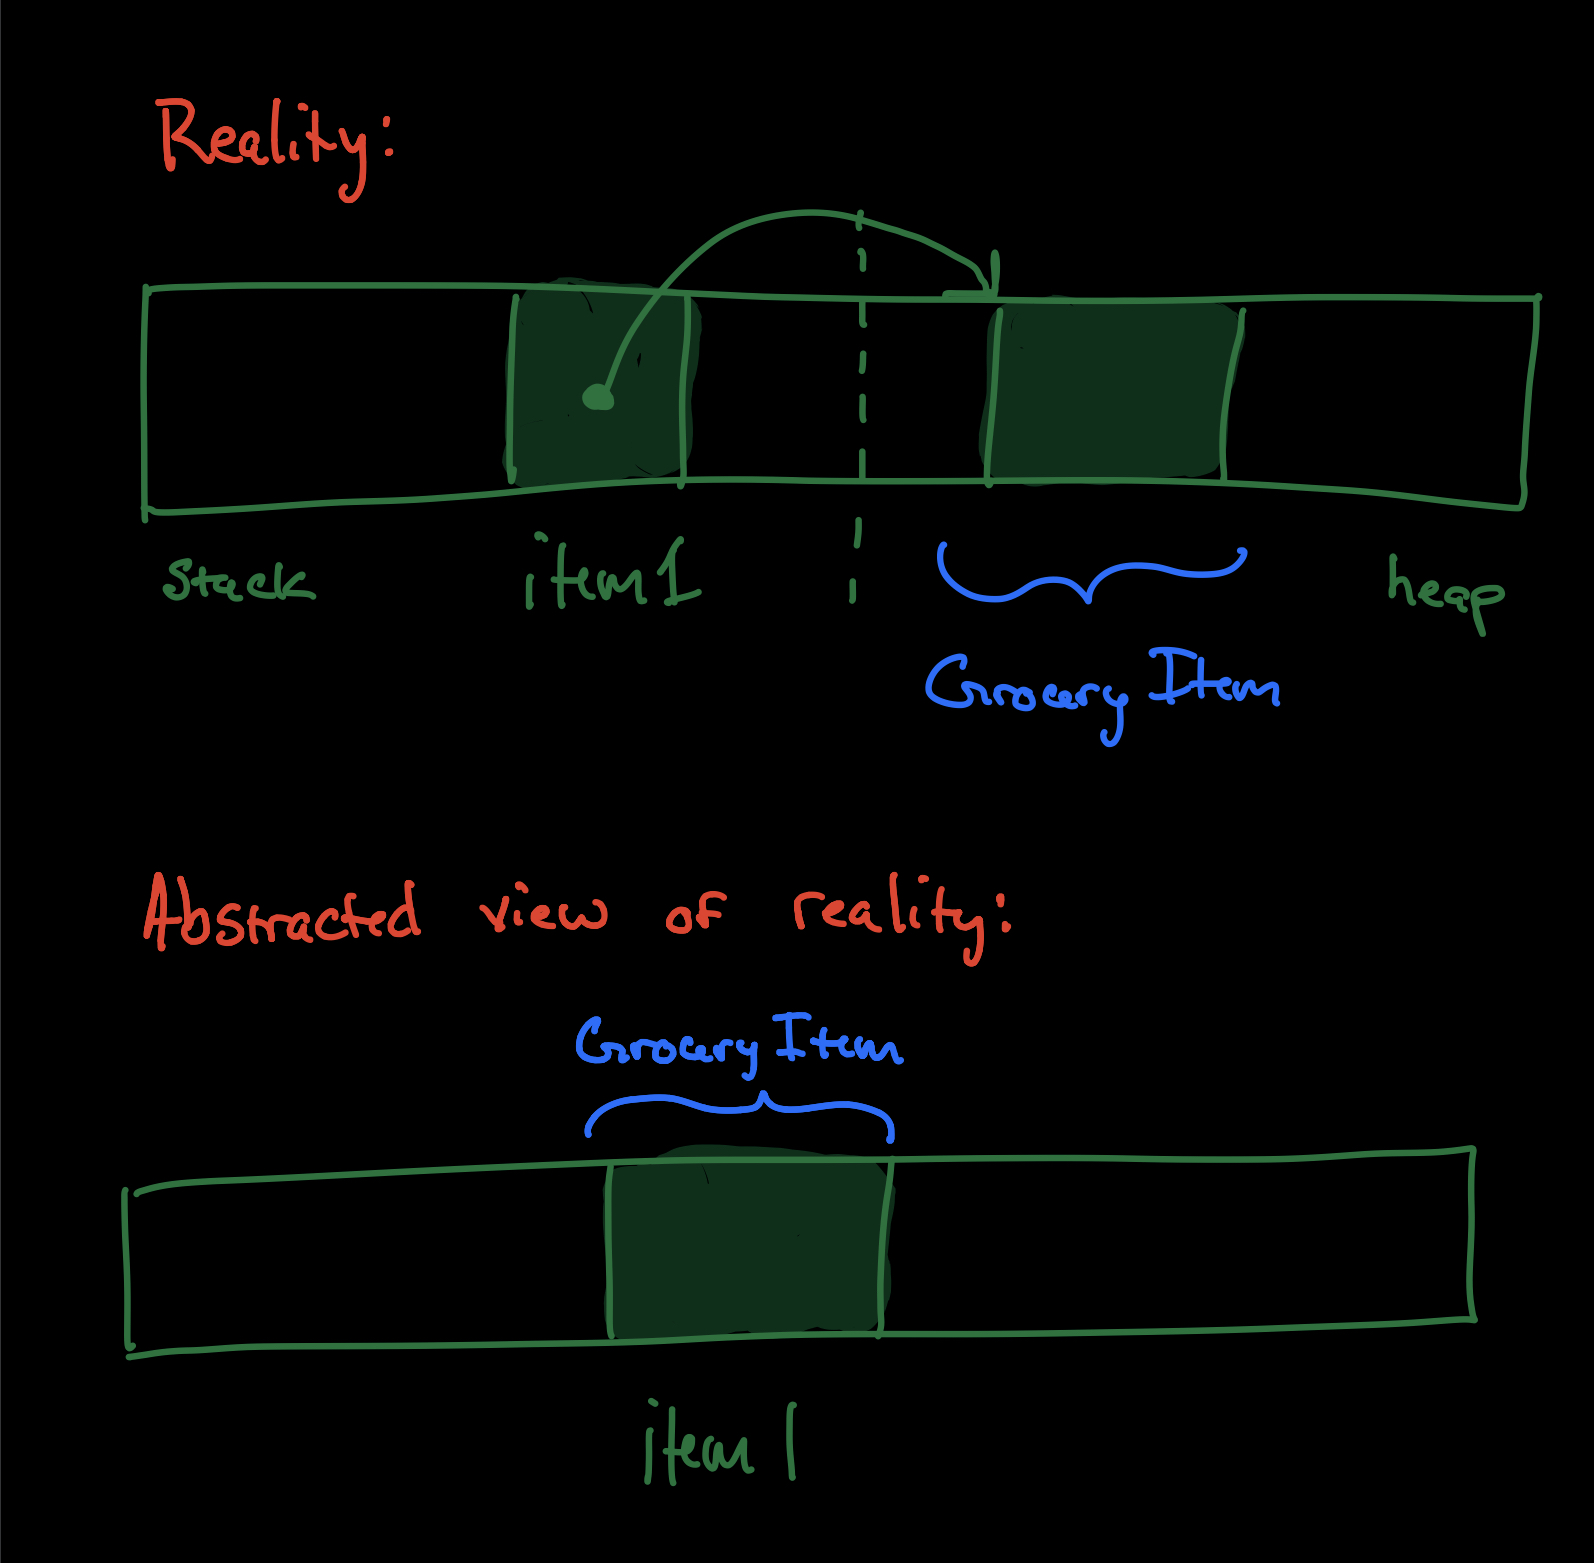 Reality:
stack item1 heap
Grocery Item
Abstracted view of reality:
Grocery Item
item 1